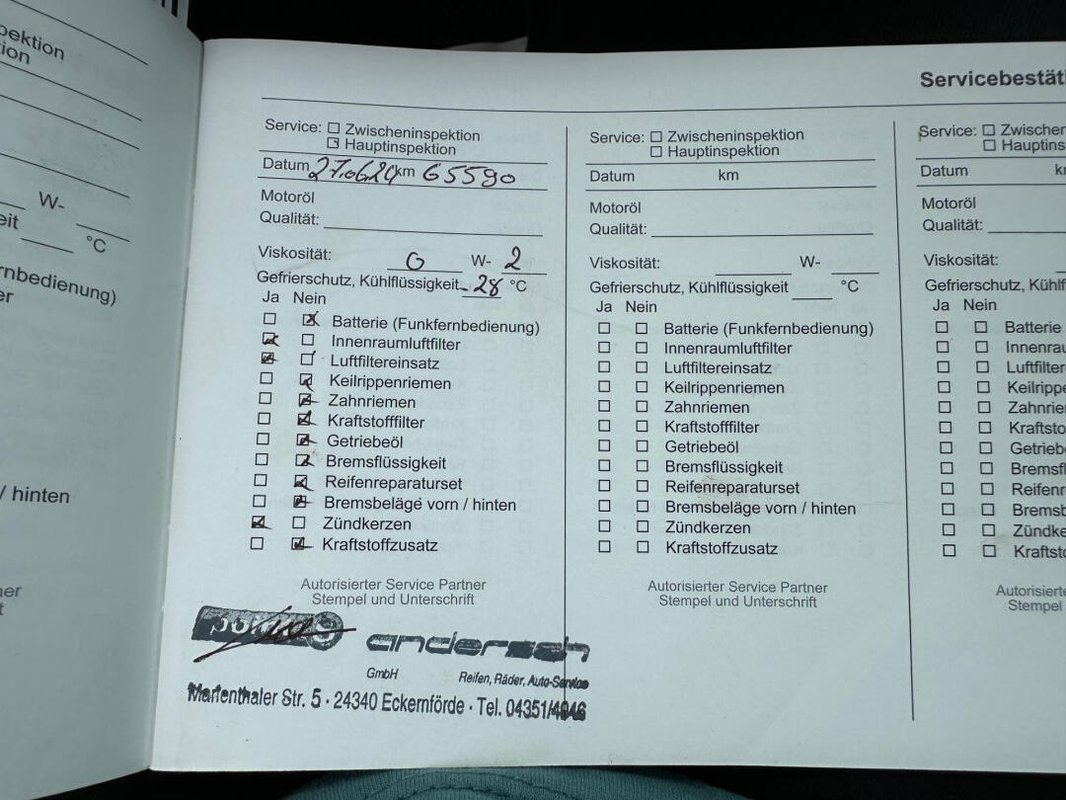 pektion
ion
W-
eit
°C
rnbedienung)
er
/ hinten
ner
t
Servicebestät
Service: ☐ Zwischeninspektion
☐ Hauptinspektion
Datum 27.06.24 km 65590
Motoröl
Qualität:
Viskosität: 0 W- 2
Gefrierschutz, Kühlflüssigkeit -28 °C
Ja Nein
☐ ☒ Batterie (Funkfernbedienung)
☒ ☐ Innenraumluftfilter
☒ ☐ Luftfiltereinsatz
☐ ☒ Keilrippenriemen
☐ ☒ Zahnriemen
☐ ☒ Kraftstofffilter
☐ ☒ Getriebeöl
☐ ☒ Bremsflüssigkeit
☐ ☒ Reifenreparaturset
☐ ☒ Bremsbeläge vorn / hinten
☒ ☐ Zündkerzen
☐ ☒ Kraftstoffzusatz
Autorisierter Service Partner
Stempel und Unterschrift
andersen
GmbH Reifen, Räder, Auto-Service
Marienthaler Str. 5 · 24340 Eckernförde · Tel. 04351/
Service: ☐ Zwischeninspektion
☐ Hauptinspektion
Datum km
Motoröl
Qualität:
Viskosität: W-
Gefrierschutz, Kühlflüssigkeit °C
Ja Nein
☐ ☐ Batterie (Funkfernbedienung)
☐ ☐ Innenraumluftfilter
☐ ☐ Luftfiltereinsatz
☐ ☐ Keilrippenriemen
☐ ☐ Zahnriemen
☐ ☐ Kraftstofffilter
☐ ☐ Getriebeöl
☐ ☐ Bremsflüssigkeit
☐ ☐ Reifenreparaturset
☐ ☐ Bremsbeläge vorn / hinten
☐ ☐ Zündkerzen
☐ ☐ Kraftstoffzusatz
Autorisierter Service Partner
Stempel und Unterschrift
Service: ☐ Zwischen
☐ Hauptins
Datum k
Motoröl
Qualität:
Viskosität:
Gefrierschutz, Kühlf
Ja Nein
☐ ☐ Batterie
☐ ☐ Innenrau
☐ ☐ Luftfilter
☐ ☐ Keilrippe
☐ ☐ Zahnrie
☐ ☐ Kraftsto
☐ ☐ Getriebe
☐ ☐ Bremsfl
☐ ☐ Reifenre
☐ ☐ Bremsb
☐ ☐ Zündke
☐ ☐ Kraftsto
Autorisierte
Stempel